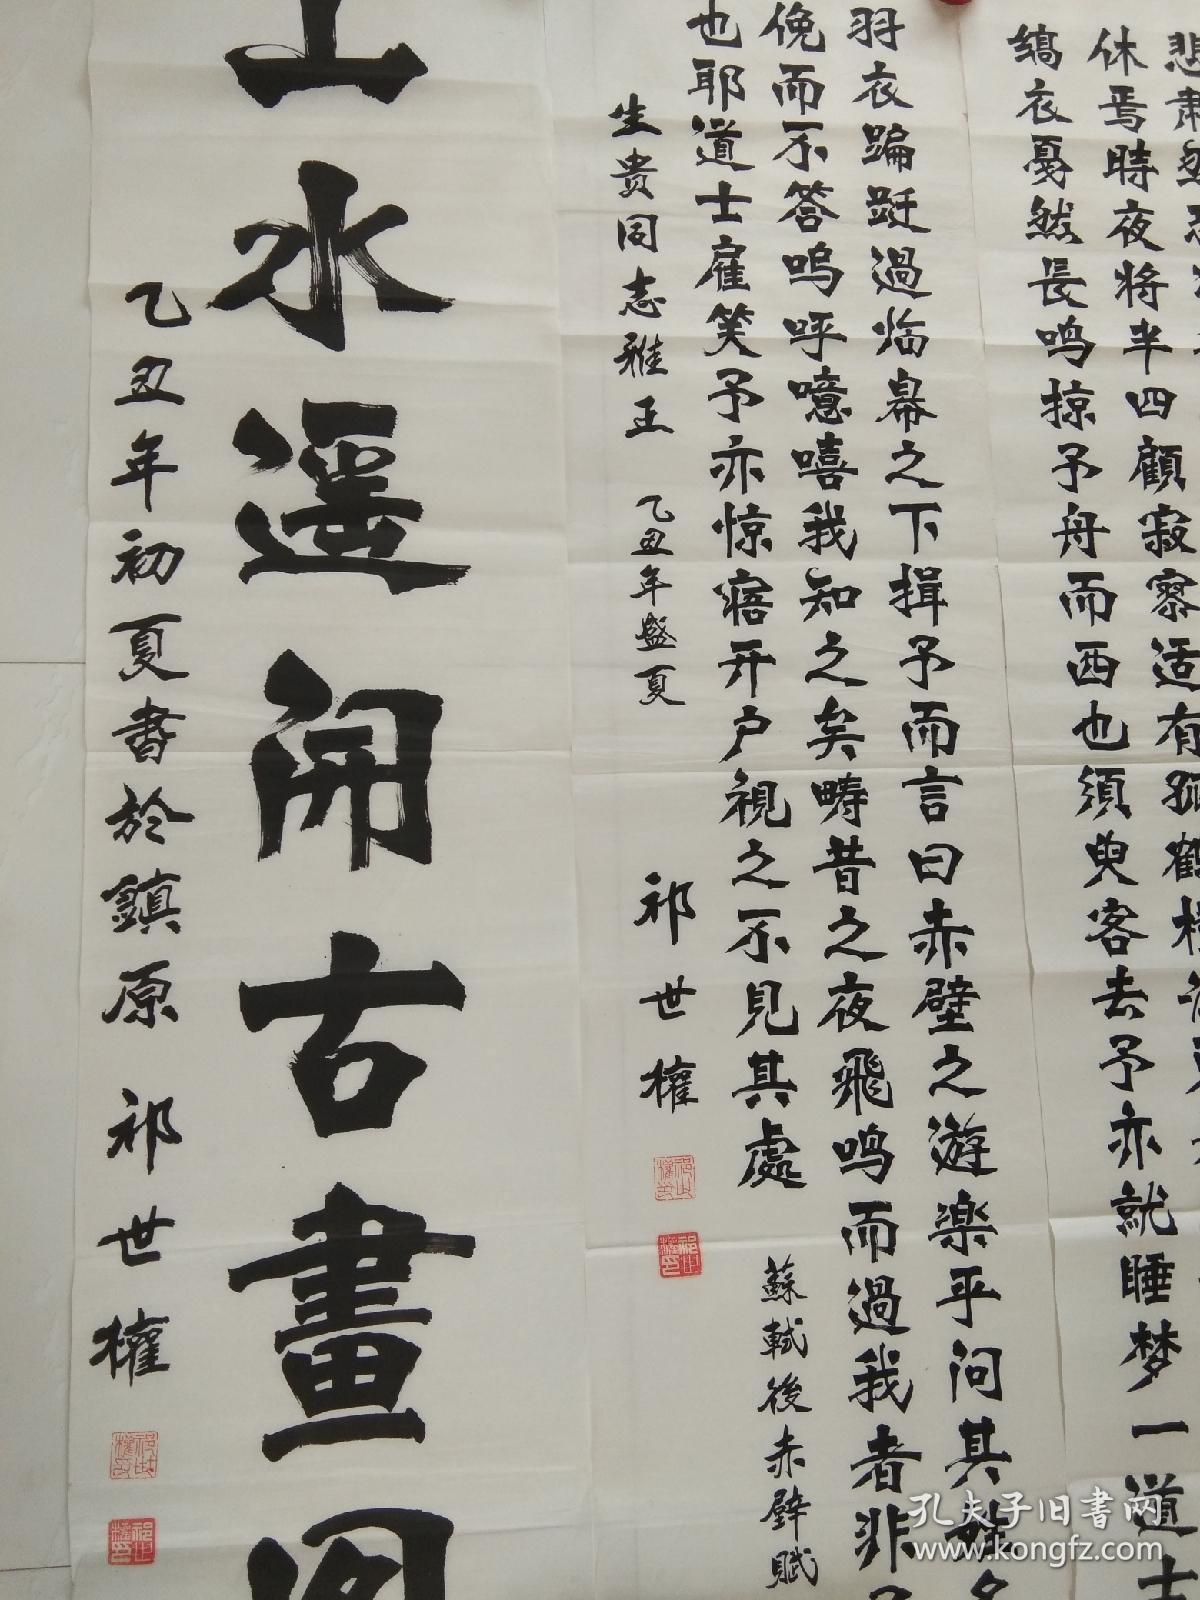 悲肃然恐
休焉時夜将半四顧寂寥适有孤鶴横
縞衣戛然長鸣掠予舟而西也須臾客去予亦就睡梦一道士
羽衣蹁跹過临皋之下揖予而言曰赤壁之游楽乎问其姓名
俛而不答呜呼噫嘻我知之矣畴昔之夜飛鸣而過我者非
也耶道士雇笑予亦惊寤开户視之不見其處
蘇軾後赤壁賦
生贵同志雅正 乙丑年盛夏 祁世權
山水遥開古畫図
乙丑年初夏書於鎮原 祁世權
孔夫子旧書网
www.kongfz.com